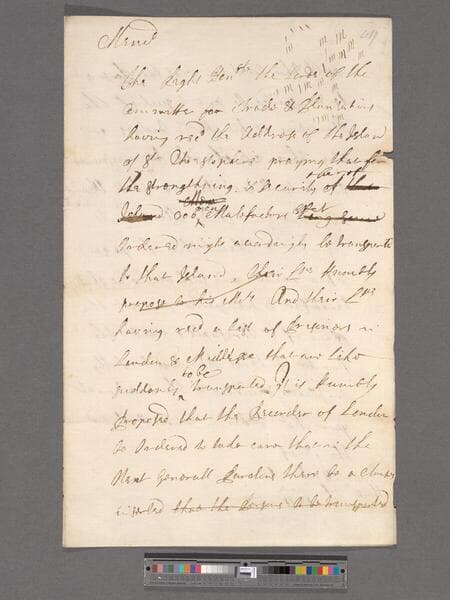 Mem.d
The Right Hon.ble the Lords of the
Committee for Trade & Plantations
having rec.d the Address of the Island
of St Christophers praying that for
the strengthning & Security of that
Island 300 Malefactors
Ordered might accordingly be transported
to that Island, their Lo.ps humbly
propose to his Ma.ty And their Lo.ps
having rec.d a List of Prisoners in
London & Middlesex that are like
suddenly to be transported It is humbly
Proposed that the Recorder of London
be Ordered to take care that in the
Next Generall Pardons there be a clause
inserted that the Prisoners to be transported